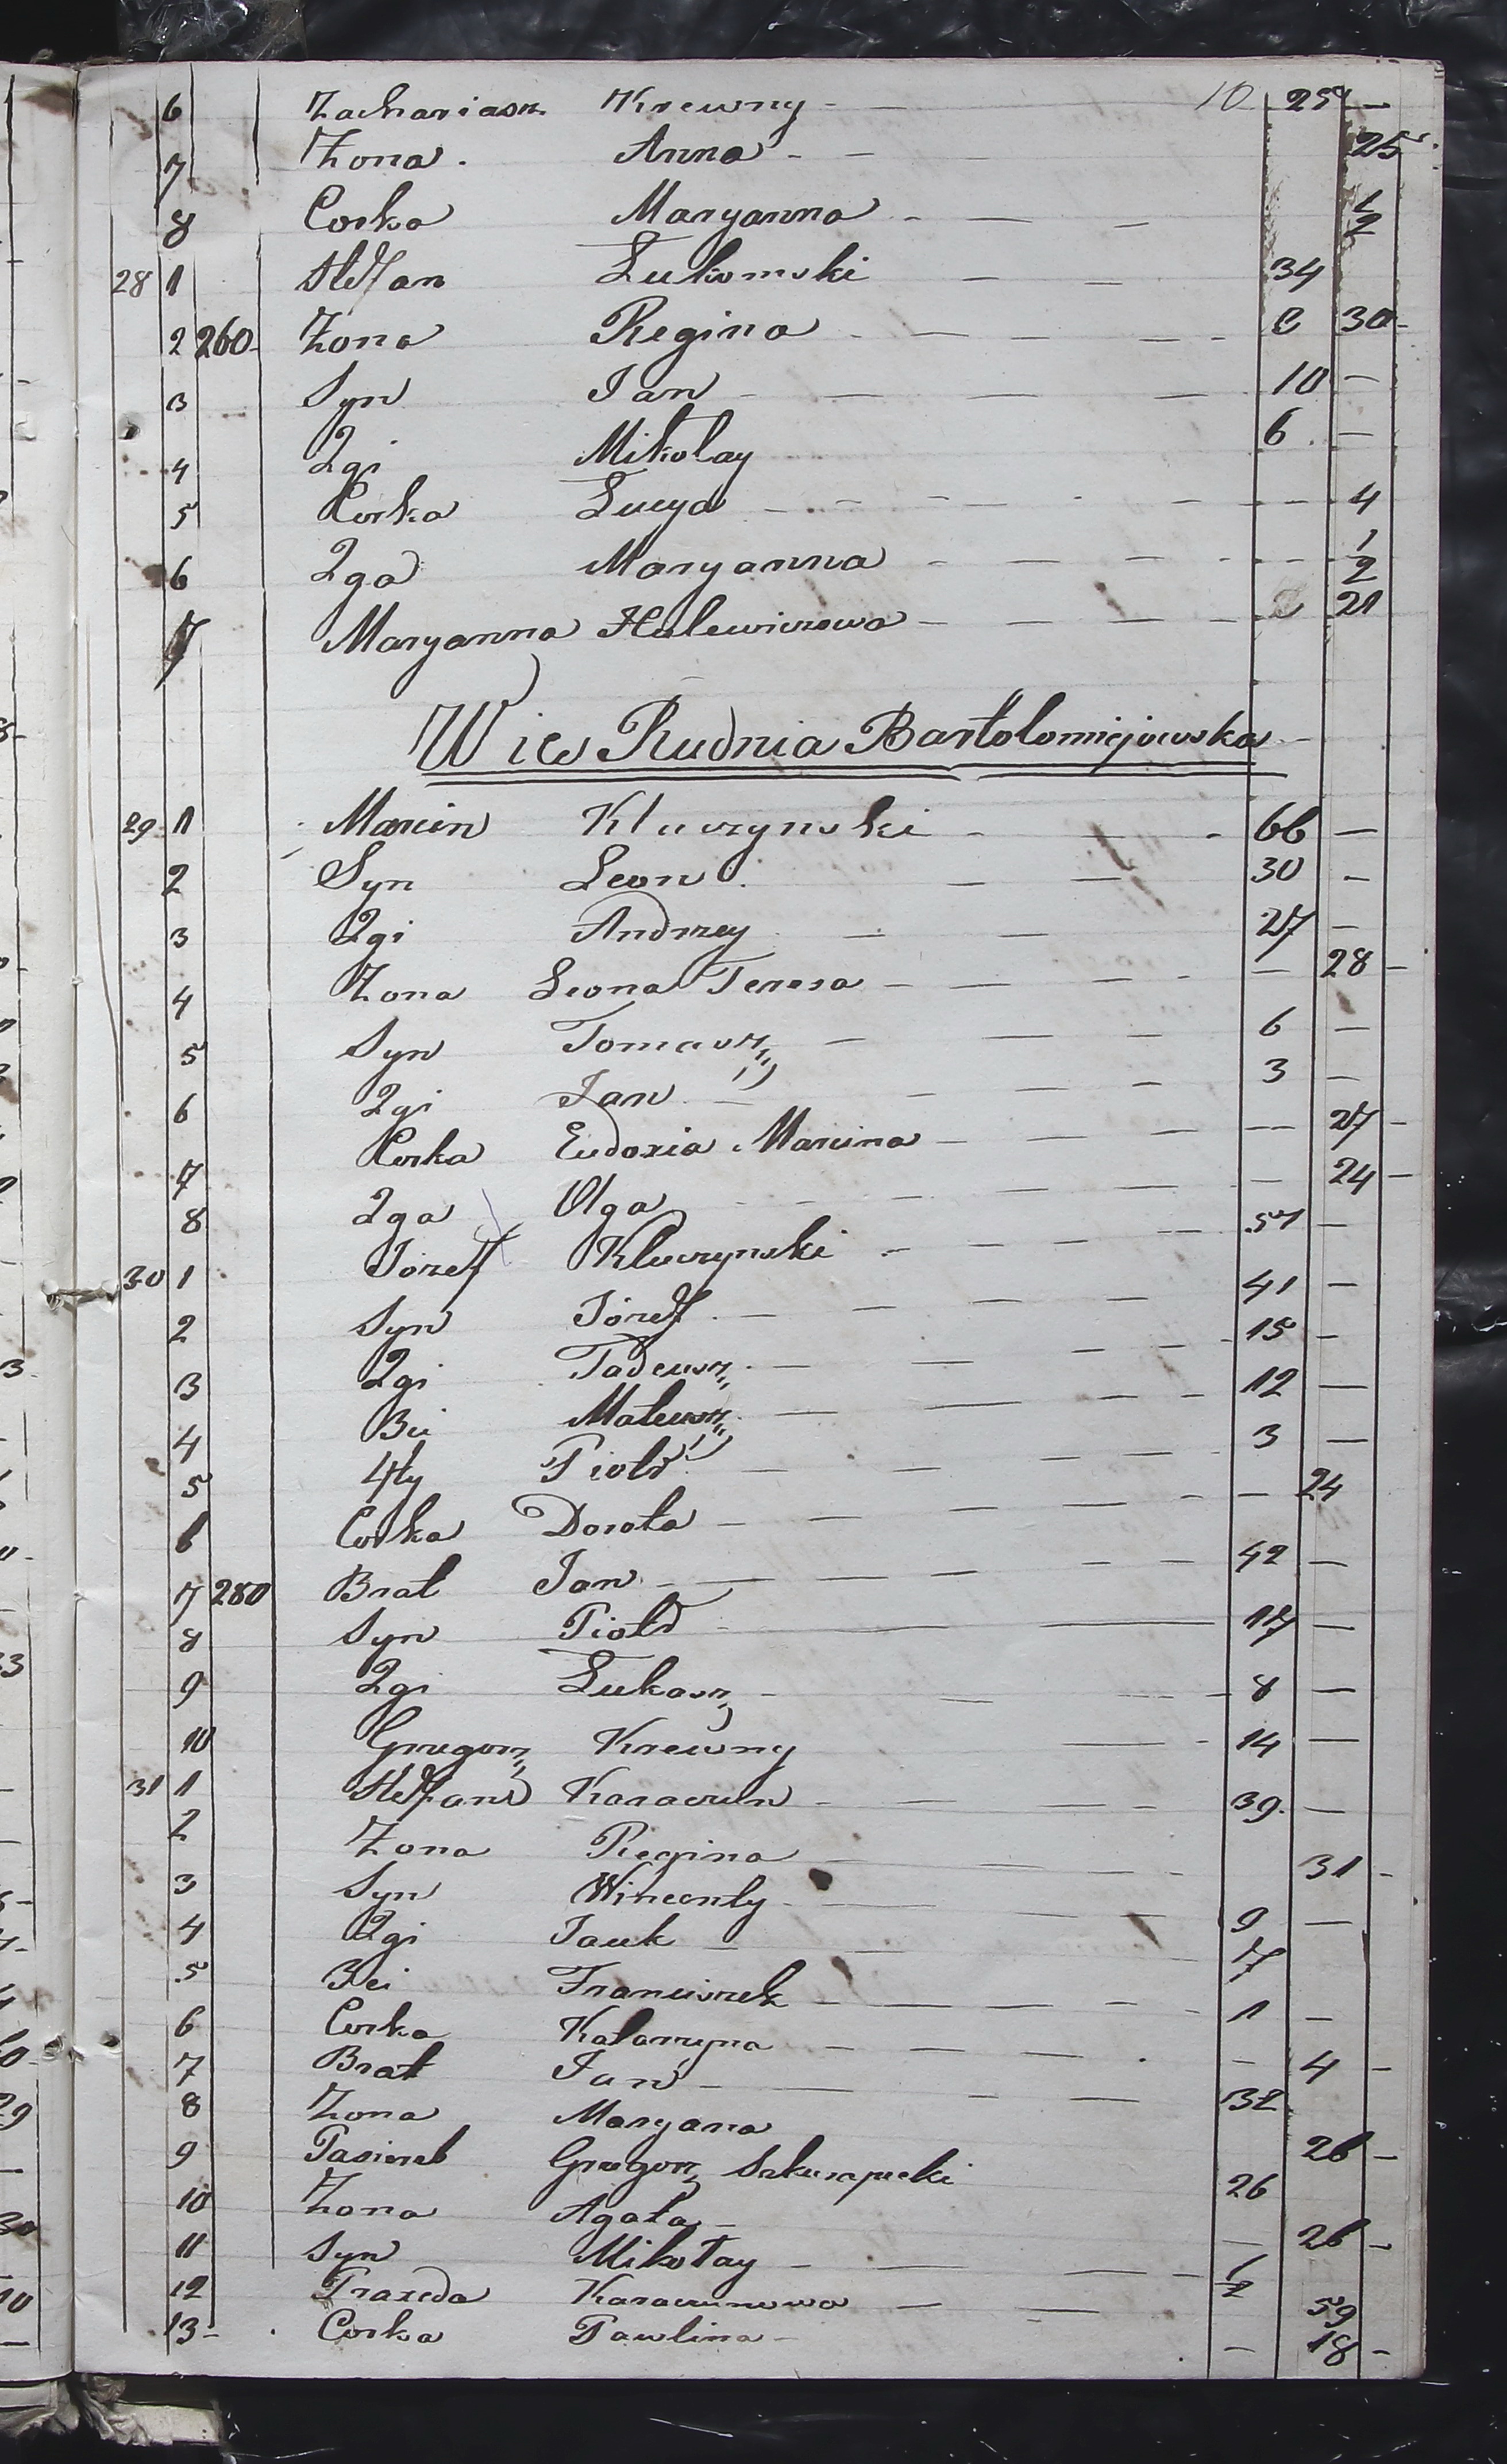 6 Zachariasz Krewny - 10 25 -
7 Zona Anna - 25
8 Corka Maryanna - 1/2
28 1 Steffan Lukomski - 34
2 260 Zona Regina - 30
3 Syn Jan - 10 -
4 2gi Mikolay 6 -
5 Corka Lucya - 4
6 2ga Maryanna - 1/2
7 Maryanna Halewiczowa - 21
Wieś Rudnia Bartolomiejowska
29 1 Marcin Kluczynski - 66 -
2 Syn Leon - 30 -
3 2gi Andrzey - 27 -
4 Zona Leona Teresa - 28 -
5 Syn Tomasz - 6 -
6 2gi Jan - 3 -
7 Corka Eudoxia Marcina - 27 -
8 2ga Olga - 24 -
30 1 Jozeff Kluczynski - 57 -
2 Syn Józeff - 41 -
3 2gi Tadeusz - 15 -
4 3ci Mateusz - 12 -
5 4ty Piotr - 3 -
6 Corka Dorota - 24
7 280 Brat Jan - 42 -
8 Syn Piotr - 17 -
9 2gi Lukasz - 8 -
10 Grzegorz Krewny - 14 -
31 1 Steffan Karaczun - 39 -
2 Zona Regina - 31 -
3 Syn Wincenty - 9 -
4 2gi Jauk - 7
5 3ci Franciszek - 1 -
6 Corka Katarzyna - 4 -
7 Brat Jan - 32
8 Zona Maryana 26 -
9 Pasierb Grzegorz 26
10 Zona Agata - 26 -
11 Syn Mikołay - 1/2
12 Praxeda Karaczunowa - 59
13 - Corka Pawlina - 18 -